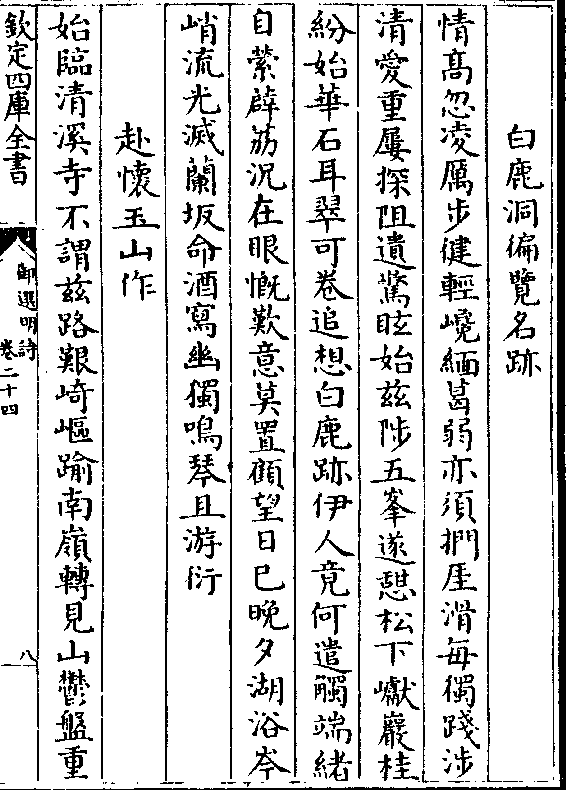 白鹿洞徧覽名跡
情髙忽凌厲步健輕巉緬葛弱亦須捫厓滑毎獨踐涉
清愛重屢探阻遺驚眩始茲陟五峯遂憇松下巘巖桂
紛始華石耳翠可卷追想白鹿跡伊人竟何遣觸端緒
自縈辟荔況在眼慨歎意莫置顧望日已晚夕湖浴岑
峭流光滅蘭坂命酒寫幽獨鳴琴且游衍
赴懷玉山作
始臨清溪寺不謂茲路艱崎嶇踰南嶺轉見山鬱盤重
欽定四庫全書
御選明詩
卷二十四
八